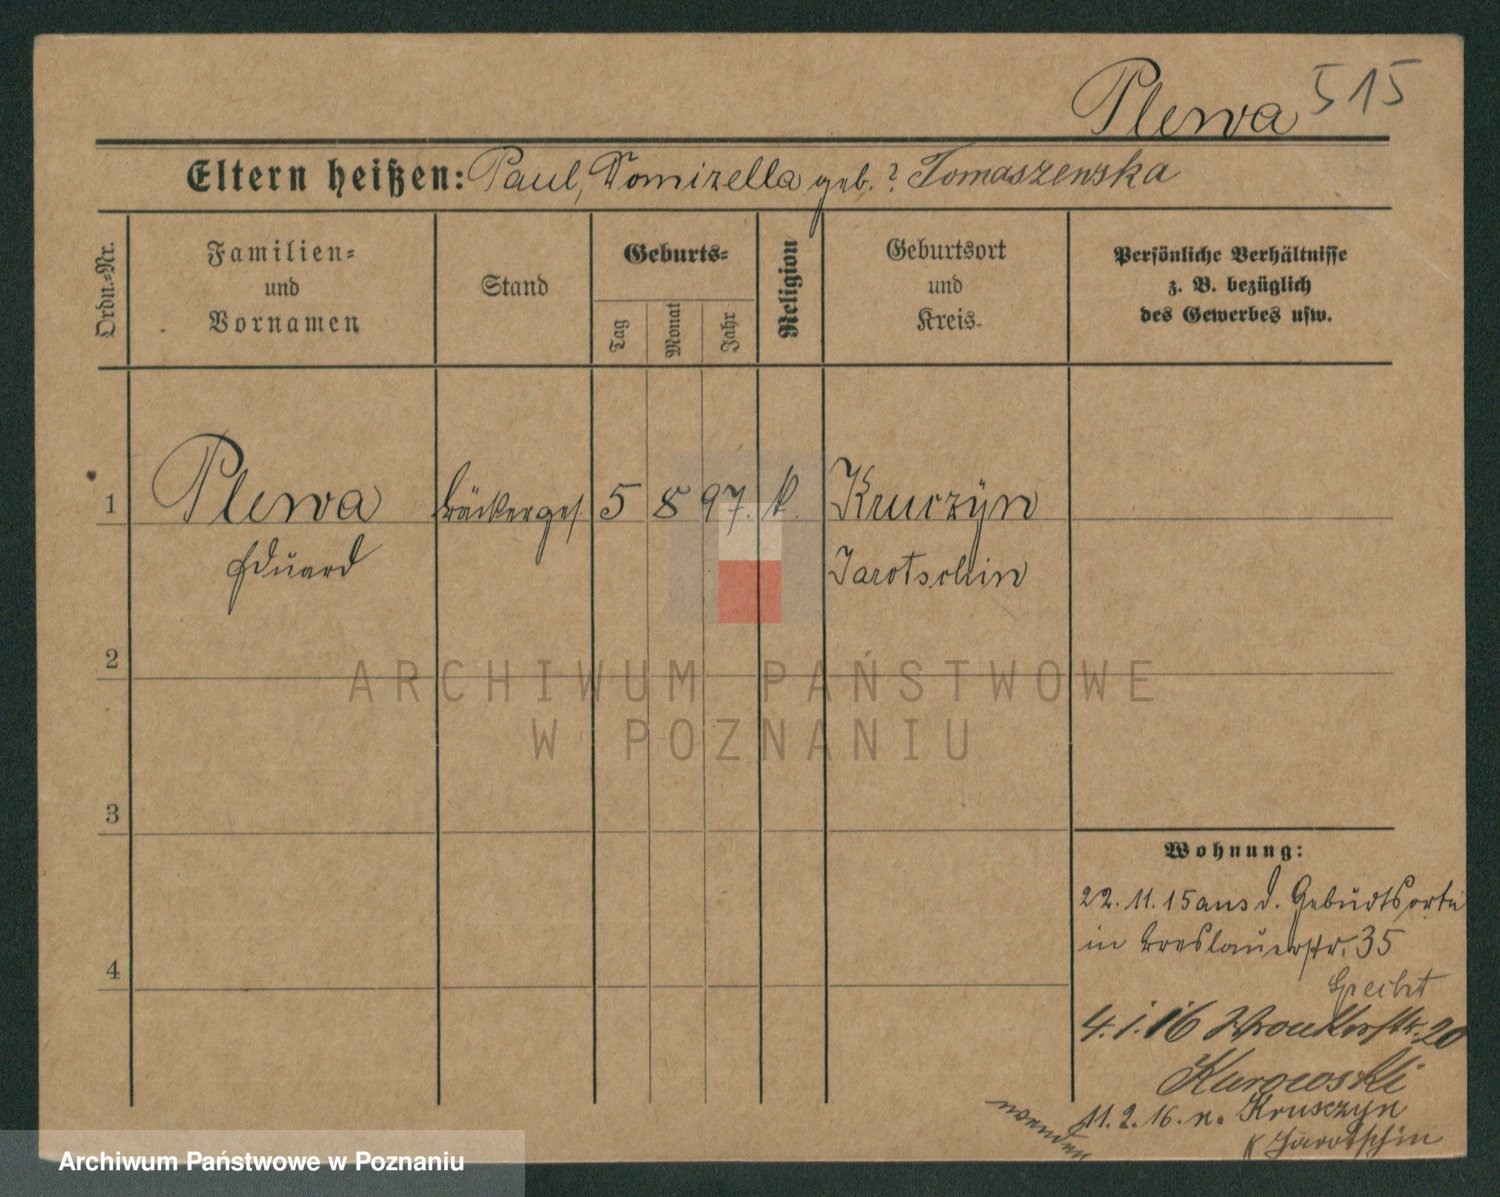 Plewa 515
Eltern heißen: Paul, Domizella geb. ? Tomaszewska
Ordn.=Nr.
Familien=
und
Vornamen
Stand
Geburts=
Tag
Monat
Jahr
Religion
Geburtsort
und
Kreis
Persönliche Verhältnisse
z. B. bezüglich
des Gewerbes usw.
1 Plewa Bäckerges. 5 8 97. k. Kruczyn
Eduard Jarotschin
2
3
4
Wohnung:
22. 11. 15 aus d. Gebudtsorte
in Breslauerstr. 35
Specht
4. 1. 16 Wronkerstr. 20
Kurowski
11. 2. 16. n. Kruszyn
K Jarotschin
wenden
ARCHIWUM PAŃSTWOWE
W POZNANIU
Archiwum Państwowe w Poznaniu